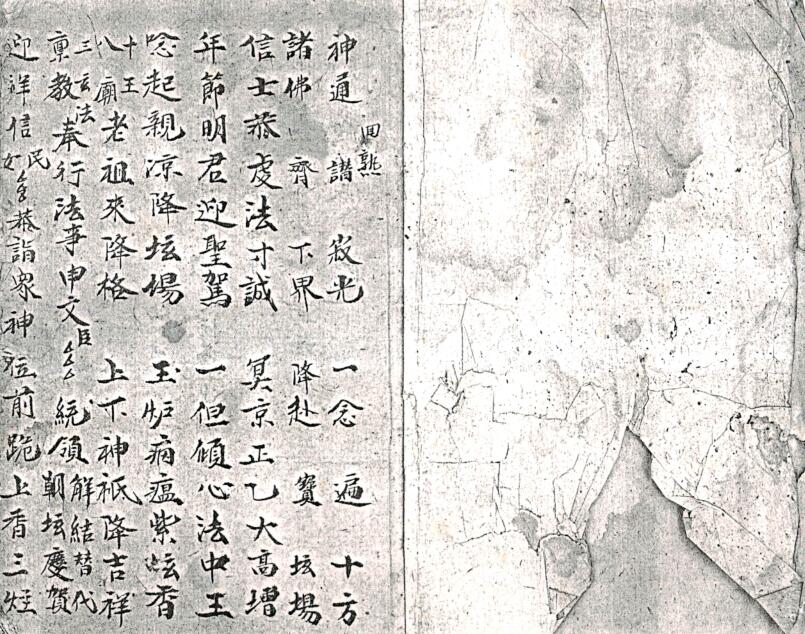 神通 讃 寂光 一念 遍 十方
回熟
諸佛 齊 下界 降赴 寶 坛場
信士恭虔法寸誠 冥京正乙大高增
年節明君迎聖駕 一但傾心法中王
唸起親凉降坛場 玉炉病瘟紫炫香
十王八廟老祖來降格 上下神祇降吉祥
三玄法
稟教奉行法事申文臣 統領解結替代朝坛慶賀
迎祥信民女 恭詣衆神位前跪上香三炷